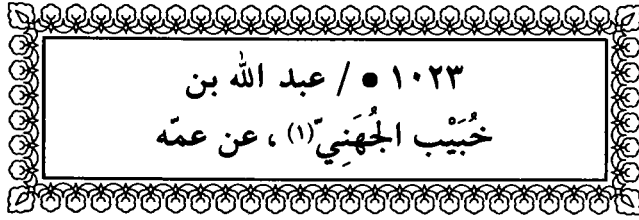 ١٠٢٣ • / عبد الله بن
خُبَيْب الجُهَنِيّ(١) ، عن عمّه